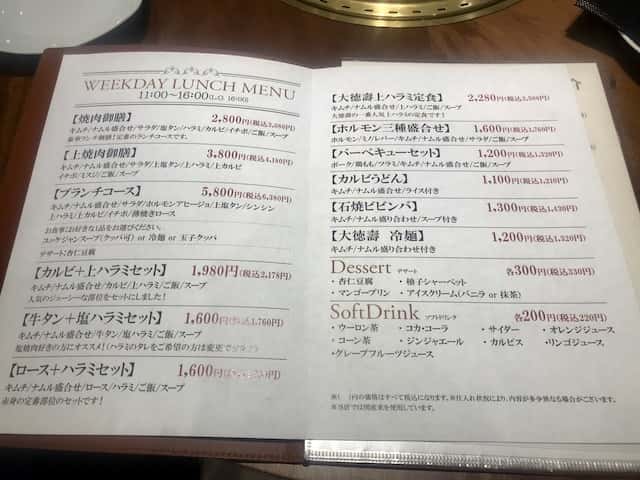 WEEKDAY LUNCH MENU
11:00～16:00(L.O. 16:00)
【焼肉御膳】 2,800円(税込3,080円)
キムチ/ナムル盛合せ/サラダ/塩タン/ハラミ/カルビ/イチボ/ご飯/スープ
豪華ランチ御膳!定番のランチコースです。
【上焼肉御膳】 3,800円(税込4,180円)
キムチ/ナムル盛合せ/サラダ/上塩タン/上ハラミ/上カルビ
イチボ/ミスジ/ご飯/スープ
【ブランチコース】 5,800円(税込6,380円)
キムチ/ナムル盛合せ/サラダ/ホルモンアヒージョ/上塩タン/シンシン
上ハラミ/上カルビ/イチボ/薄焼きロース
お食事:お好きな1品をお選びください。
ユッケジャンスープ(クッパ可) or 冷麺 or 玉子クッパ
デザート:杏仁豆腐
【カルビ+上ハラミセット】 1,980円(税込2,178円)
キムチ/ナムル盛合せ/カルビ/上ハラミ/ご飯/スープ
人気のジューシーな部位をセットにしました!
【牛タン+塩ハラミセット】 1,600円(税込1,760円)
キムチ/ナムル盛合せ/牛タン/塩ハラミ/ご飯/スープ
塩焼肉好きの方にオススメ!(ハラミのタレをご希望の方は変更で
【ロース+ハラミセット】 1,600円
キムチ/ナムル盛合せ/ロース/ハラミ/ご飯/スープ
赤身の定番部位のセットです!
【大徳壽上ハラミ定食】 2,280円(税込2,508円)
キムチ/ナムル盛合せ/サラダ/上ハラミ/ご飯/スープ
大徳壽の一番人気上ハラミの定食です!
【ホルモン三種盛合せ】 1,600円(税込1,760円)
ホルモン/ミノ/レバー/キムチ/ナムル盛合せ/サラダ/ご飯/スープ
【バーベキューセット】 1,200円(税込1,320円)
ポーク/鶏もも/ツラミ/キムチ/ナムル盛合せ/ご飯/スープ
【カルビうどん】 1,100円(税込1,210円)
キムチ/ナムル盛合せ/ライス付き
【石焼ビビンバ】 1,300円(税込1,430円)
キムチ/ナムル盛り合わせ/スープ付き
【大徳壽 冷麺】 1,200円(税込1,320円)
キムチ/ナムル盛り合わせ付き
Dessert デザート 各300円(税込330円)
・杏仁豆腐 ・柚子シャーベット
・マンゴープリン ・アイスクリーム(バニラ or 抹茶)
SoftDrink ソフトドリンク 各200円(税込220円)
・ウーロン茶 ・コカ・コーラ ・サイダー ・オレンジジュース
・コーン茶 ・ジンジャエール ・カルピス ・リンゴジュース
・グレープフルーツジュース
※( )内の価格はすべて税込になります。※仕入れ状況により、内容が多少異なる場合がございます。
※当店では国産米を使用しています。